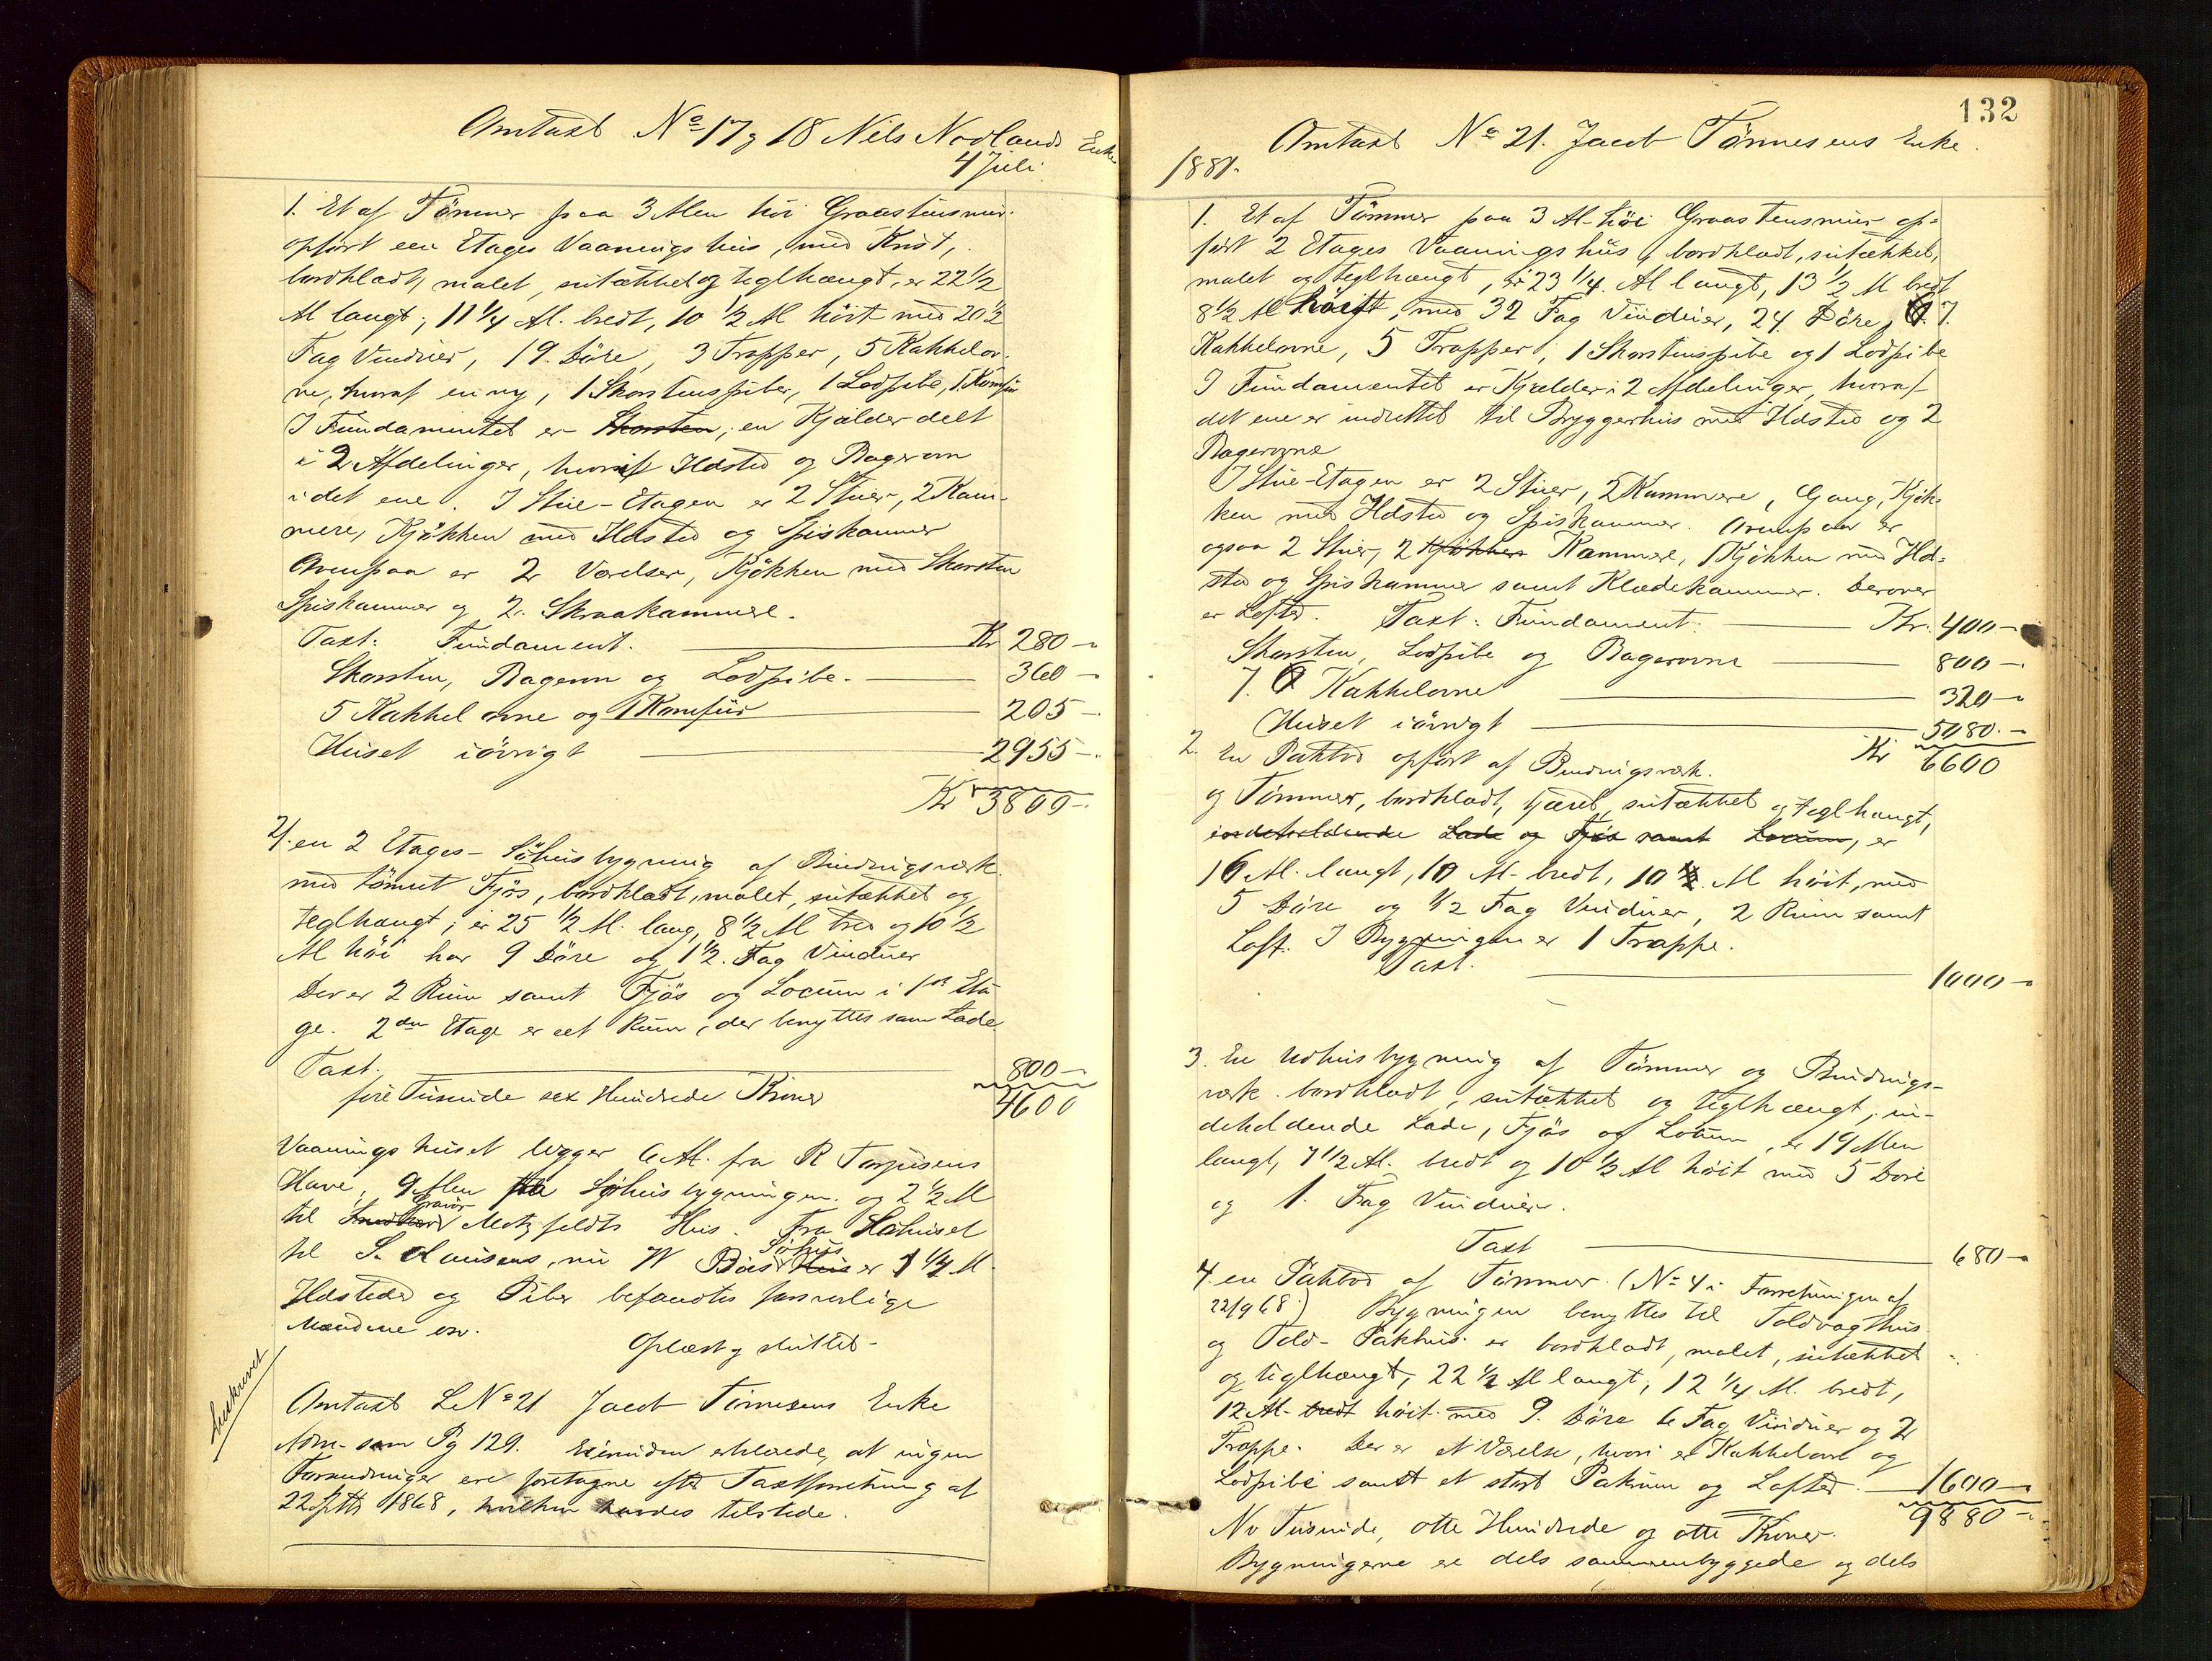 Omtaxt No 17 og 18 Nils Nodlands Enke
4 Juli
1. Et af Tömmer paa 3 Alen höi Graastensmuur
opfört een Etages Vaaningshus, med Kvist,
bordklædt, malet, sutækket og teglhængt, er 22 1/2
Al langt, 11 1/4 Al. bredt, 10 1/2 Al höit med 20 1/2
Fag Vinduer, 19 Döre, 3 Trapper, 5 Kakkelov-
ne, hvoraf en ny, 1 Skorstenspibe, 1 Lodpibe, 1 Komfur
I Fundamentet er Skorsten, en Kjælder delt
i 2 Afdelinger, hvoraf Ildsted og Bagerovn
i det ene. I Stue-Etagen er 2 Stuer, 2 Kam-
mere, Kjökken med Ildsted og Spiskammer
Ovenpaa er 2 Værelser, Kjökken med Skorsten
Spiskammer og 2 Skraakammere.
Taxt: Fundament. Kr 280-
Skorsten, Bagerovn og Lodpibe. 360-
5 Kakkelovne og 1 Komfür 205-
Huset iövrigt 2955-
Kr 3800-
2/. en 2 Etages Söhusbygning af Bindingsværk
med tömret Fjös, bordklædt, malet, sutækket og
teglhængt, er 25 1/2 Al. lang, 8 1/2 Al bred og 10 1/2
Al höi har 9 Döre og 1 1/2 Fag Vinduer
Der er 2 Rum samt Fjös og Locum i 1ste Eta
ge. 2den Etage er eet Rum, der benyttes som Lade
Taxt. 800-
fire Tusinde sex Hundrede Kroner 4600
Vaaningshuset ligger 6 Al. fra R Torjusens
Have, 9 Alen fra Söhusbygningen og 2 1/2 Al
til Snedker Gravör Motzfeldts Hus. Fra Söhuset
til S. Clausens, nu W Bös Hus Söhus er 1 1/4 Al
Ildsteder og Piber befandtes forsvarlige
Mændene osv.
Oplæst og sluttet-
Udskrevet
Omtaxt L No 21 Jacob Tönnesens Enke
Adm. som Pg 129. Eierinden erklærede, at ingen
Forandringer ere foretagne efter Taxtforretning af
22 Septbr 1868, hvilken havdes tilstede.
132
Omtaxt No 21. Jacob Tönnesens Enke
1881.
1. Et af Tömmer paa 3 Al höi Graastensmuur op-
fört 2 Etages Vaaningshus, bordklædt, sutækket,
malet og teglhængt, er 23 1/4 Al langt, 13 1/2 Al bredt
8 1/2 Al höit, med 32 Fag Vinduer, 24 Döre, 7.
Kakkelovne, 5 Trapper, 1 Skorstenspibe og 1 Lodpibe
I Fundamentet er Kjælder i 2 Afdelinger, hvoraf
det ene er indrettet til Bryggerhus med Ildsted og 2
Bagerovne
I Stue-Etagen er 2 Stuer, 2 Kammere, Gang, Kjök-
ken med Ildsted og Spiskammer. Ovenpaa er
ogsaa 2 Stuer, 2 Kjökken Kammere, 1 Kjökken med Ild-
sted og Spiskammer samt Klædekammer. Derover
er Lofted. Taxt: Fundament: Kr. 400-
Skorsten, Lodpibe og Bagerovne 800-
7. Kakkelovne 320-
Huset iövrigt 5080.-
Kr 6600
2. En Pakbod opfört af Bindingsværk.
og Tömmer, bordklædt, tjæret, sutækket og teglhængt,
indeholdende Lade og Fjös samt Locum, er
16 Al. langt, 10 Al. bredt, 10 1/2 Al höit, med
5 Döre og 1/2 Fag Vinduer, 2 Rum samt
Loft. I Bygningen er 1 Trappe.
Taxt. 1000-
3. En Udhusbygning af Tömmer og Bindings-
værk bordklædt, sutækket og teglhængt, in-
deholdende Lade, Fjös og Locum, er 19 Alen
langt, 7 1/2 Al. bredt og 10 1/2 Al höit med 5 Döre
og 1. Fag Vinduer.
Taxt 680-
4. en Pakbod af Tömmer (No 4 i Forretningen af
22/9 68.) Bygningen benyttes til Toldvagthus
og Told-Pakhus. er bordklædt, malet, sutækket
og teglhængt, 22 1/2 Al langt, 12 1/4 Al. bredt,
12 Al. bredt höit med 9. Döre 6 Fag Vinduer og 2
Trappe. Der er et Værelse, hvori er Kakkelovn og
Lodpibe samt et stort Pakrum og Lofted. 1600-
Ni Tusinde, otte Hundrede og otti Kroner. 9880-
Bygningerne ere dels sammenbyggede og dels